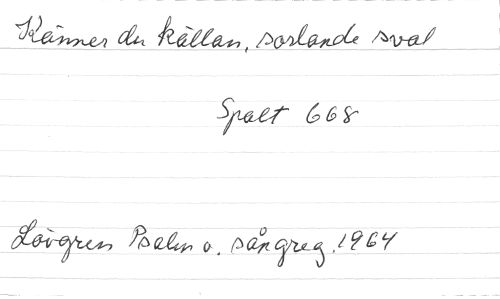 Känner du källan, sorlande sval
Spalt 668
Lövgren Psalm o. sångreg. 1964